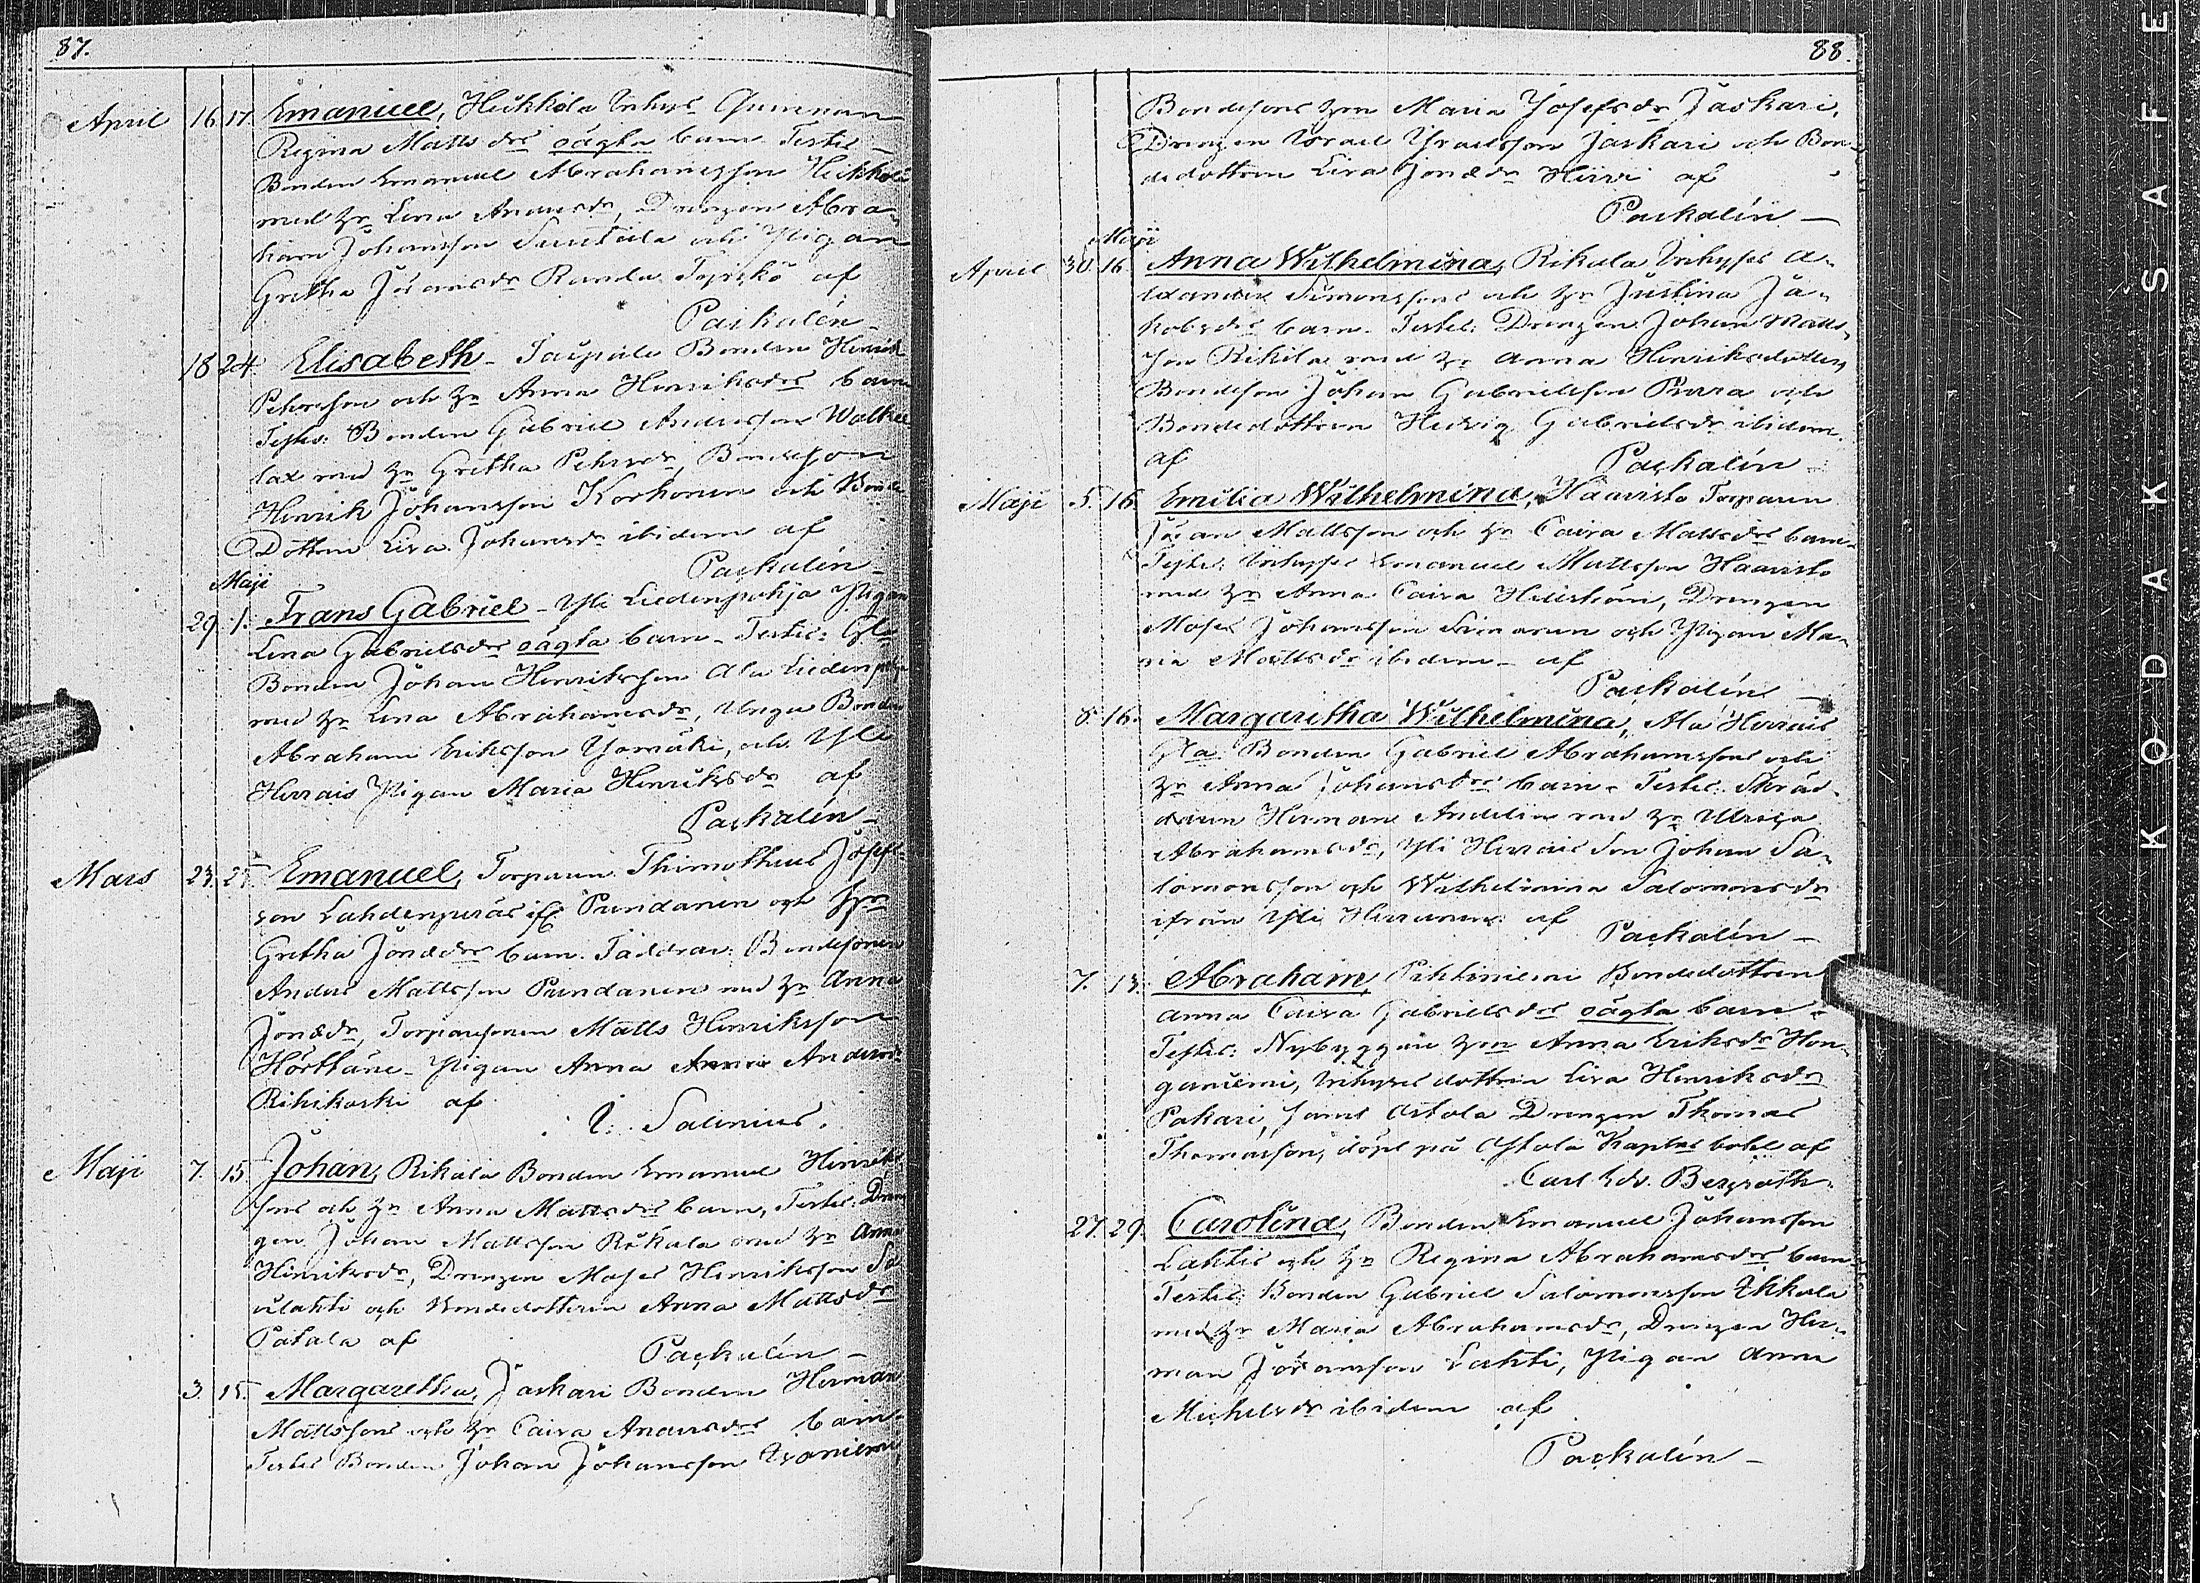 87.
April 16. 17. Emanuel, Heikkola Inhys Qwinnan
Regina Matts drs oägta barn Testes
Bonden Emanuel Abrahamsson Heikkola
med Hr Lena Andersdr, Drengen Abra-
ham Johansson och Pigan
Gretha Johansdr Randa af
Paskalén
18 24. Elisabeth Bonden Henrik
Pehrsson och Hr Anna Henriksdrs barn
Testes: Bonden Gabriel Andersson Walkea
lax med Hr Gretha Pehrsdr, Bondeson
Henrik Johansson Korhonen och Bonde
Dottren Lisa Johansdr ibidem af
Paskalén
Maji
29. 1. Frans Gabriel Yli Liedenpohja Pigan
Lena Gabrielsdrs oägta barn Testes: Gla
Bonden Johan Henriksson Ala Liedenpohja
med Hr Lena Abrahamsdr, Unga Bonden
Abraham Eriksson och Yli
Herrais Pigan Maria Henriksdr af
Paskalén
Mars 23. 25. Emanuel, Torparen Thimotheus Josefs-
son if. Pundanen och Hr
Gretha Jonædrs barn. Faddrar: Bondesonen
Anders Mattsson Pundanen med Hr Anna
Jonædr, Torparesonen Matts Henriksson
Pigan Anna Anna Andersdr
Rihikoski af
Salenius.
Maji 7. 15 Johan, Rikala Bonden Emanuel Henriks
sons och Hr Anna Mattsdrs barn, Testes: Dren
gen Johan Mattsson Rikala med Hr Anna
Henriksdr, Drengen Moses Henriksson Sa
vilahti och Bondedottren Anna Mattsdr
Patala af
Paskalén
3. 15. Margaretha, Jaskari Bonden Herman
Mattssons och Hr Caisa Andersdrs barn.
Testes Bonden Johan Johansson
88.
Bondesons Hrn Maria Josefsdr Jaskari,
Drengen Israel Israelsson Jaskari och Bon-
dedottren Lisa Jonædr Hirvi af
Paskalén
Maji
April 30. 16. Anna Wilhelmina, Rikala Inhyses A-
lexander Simonssons och Hr Justina Ja-
kobsdrs barn. Testes: Drengen Johan Matts-
son Rikala med Hr Anna Henriksdotter,
Bondeson Johan Gabrielsson och
Bondedottren Hedvig Gabrielsdr ibidem.
af
Paskalén
Maji 5. 16. Emilia Wilhelmina, Haavisto Torparen
Johan Mattsson och Hr Caisa Mattsdrs barn
Testes: Inhyses Emanuel Mattsson Haavisto
med Hr Anna Caisa Hellström, Drengen
Moses Johansson och Pigan Ma-
ria Mattsdr ibidem af
Paskalén
8. 16. Margaritha Wilhelmina, Ala Herrais
Gla Bonden Gabriel Abrahamssons och
Hr Anna Johansdrs barn. Testes. Skräd-
daren Herman Andelin med Hr Ulrica
Abrahamsdr, Yli Herrais Son Johan Sa-
lomonsson och Wilhelmina Salomonsdr
ifrån Yli af
Paskalén
7. 13. Abraham, Bondedottren
Anna Caisa Gabrielsdrs oägta barn
Testes: Nybyggare Hrn Anna Eriksdr Hon-
ganiemi, Inhyses dottren Lisa Henriksdr
Pakari, samt Astola Drengen Thomas
Thomasson, döpt på Ostola Kapels bohl af
Carl Edv. Bergroth.
27. 29. Carolina, Bonden Emanuel Johansson
Lahtis och Hr Regina Abrahamsdrs barn
Testes: Bonden Gabriel Salomonsson Ukkola
med Hr Maria Abrahamsdr, Drengen Her-
man Johansson Lahti, Pigan Anna
Michelsdr ibidem af
Paskalén
KODAK SAFE